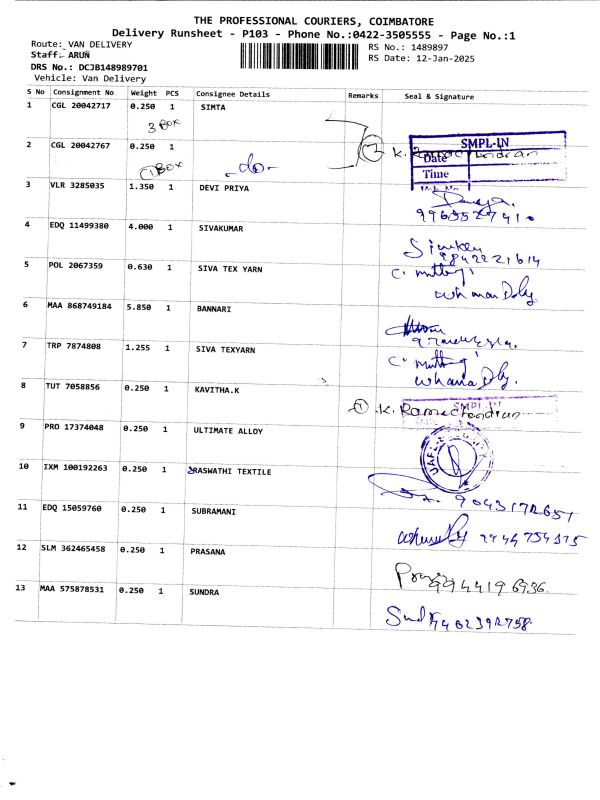 THE PROFESSIONAL COURIERS, COIMBATORE
Delivery Runsheet - P103 - Phone No.:0422-3505555 - Page No.:1
Route: VAN DELIVERY
RS No.: 1489897
Staff: ARUN
RS Date: 12-Jan-2025
DRS No.: DCJB148989701
Vehicle: Van Delivery
S No Consignment No Weight PCS Consignee Details Remarks Seal & Signature
1 CGL 20042717 0.250 1 SIMTA
3 Box
2 CGL 20042767 0.250 1 ② K. Ramachandran
SMPL-IN
Date
Time
① Box -do-
3 VLR 3285035 1.350 1 DEVI PRIYA
4 EDQ 11499380 4.000 1 SIVAKUMAR
9842221614
5 POL 2067359 0.630 1 SIVA TEX YARN
6 MAA 868749184 5.850 1 BANNARI
7 TRP 7874808 1.255 1 SIVA TEXYARN
8 TUT 7058856 0.250 1 KAVITHA.K ① K. Ramachandran
SMPL-IN
9 PRO 17374048 0.250 1 ULTIMATE ALLOY
10 IXM 100192263 0.250 1 SRASWATHI TEXTILE
11 EDQ 15059760 0.250 1 SUBRAMANI
12 SLM 362465458 0.250 1 PRASANA
9944196936
13 MAA 575878531 0.250 1 SUNDRA